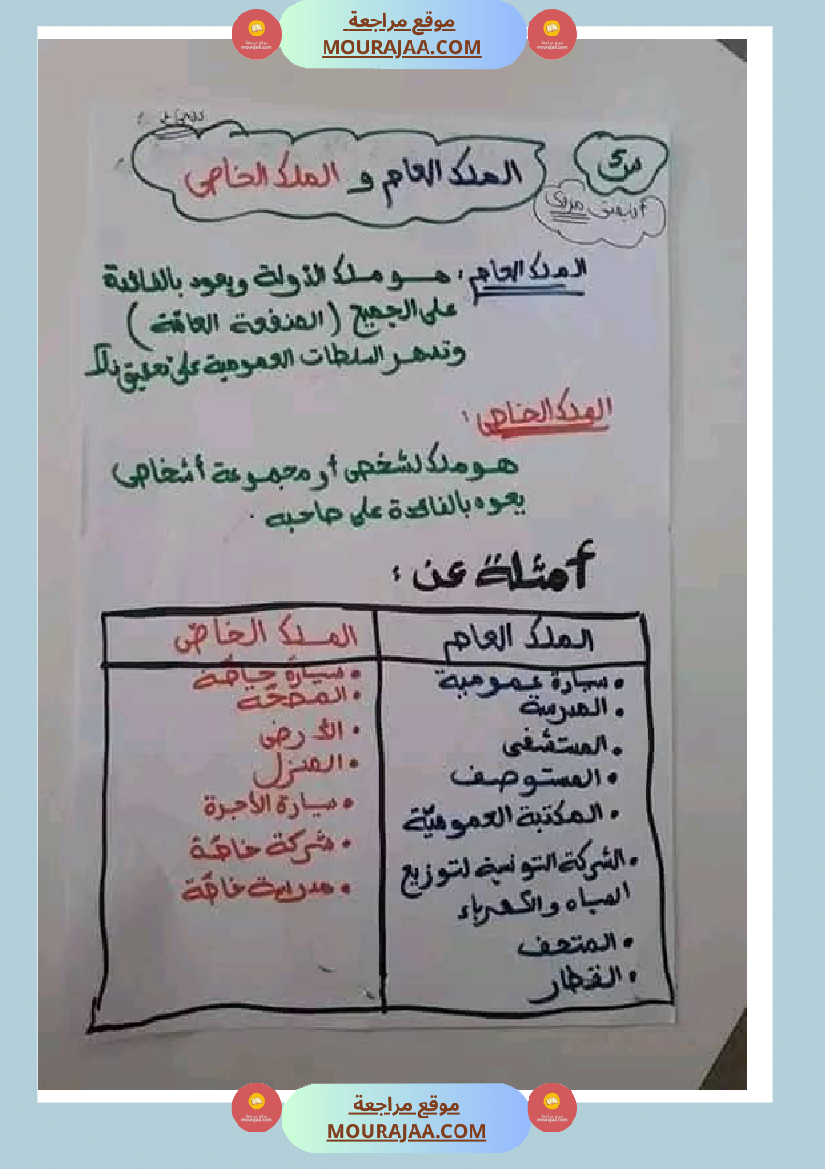 موقع مراجعة
MOURAJAA.COM
الملك العام و الملك الخاص
س5
الملك العام: هو ملك الدولة ويعود بالفائدة
على الجميع (المنفعة العامّة)
وتسهر السلطات العمومية على تحقيق ذلك
الملك الخاص:
هو ملك لشخص أو مجموعة أشخاص
يعود بالفائدة على صاحبه.
أمثلة عن:
الملك العام
الملك الخاصّ
• سيارة عمومية
• المدرسة
• المستشفى
• المستوصف
• المكتبة العموميّة
• الشركة التونسية لتوزيع
المياه والكهرباء
• المتحف
• القطار
• سيارة خاصّة
• المصحّة
• الأرض
• المنزل
• سيارة الأجرة
• شركة خاصّة
• مدرسة خاصّة
موقع مراجعة
MOURAJAA.COM